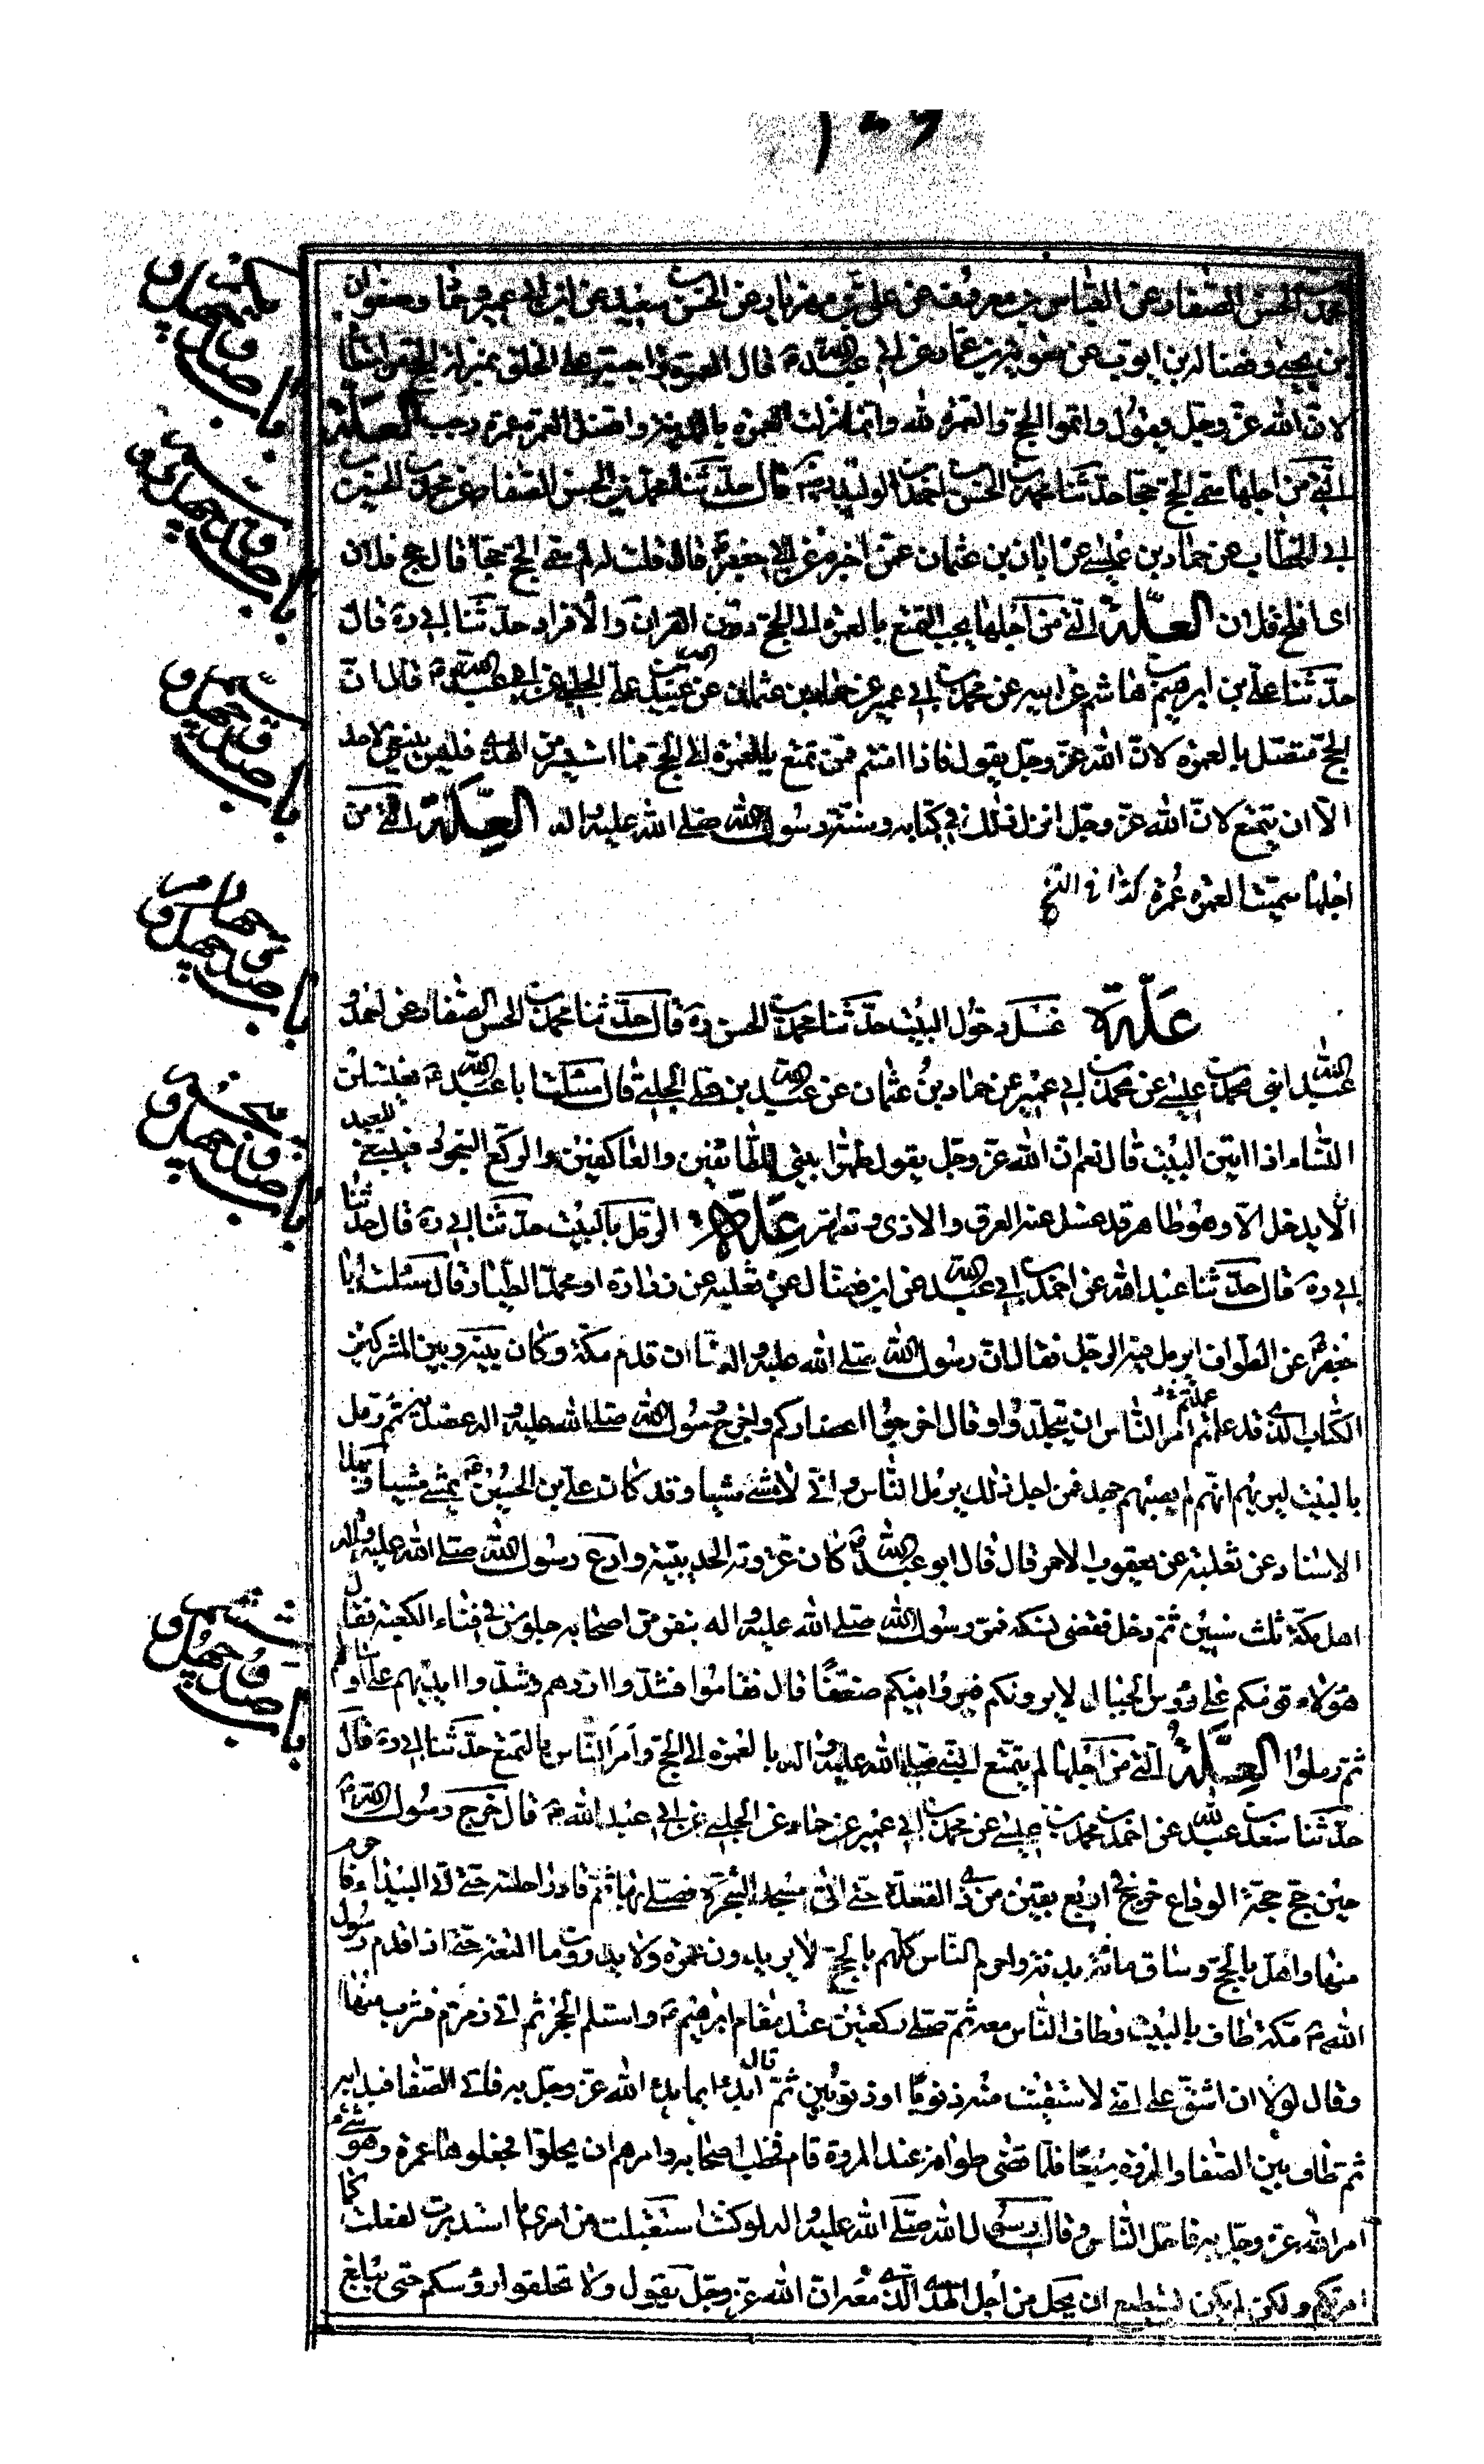 محمد بن الحسن الصفار عن العباس بن معروف عن علي بن مهزيار عن الحسن سعيد عن ابن ابي عمير وحماد وصفوان
بن يحيى وفضالة بن ايوب عن معوية بن عمار عن ابي عبد الله ع قال العمرة واجبة على الخلق بمنزلة الحج
لان الله عز وجل يقول واتموا الحج والعمرة لله وانما نزلت العمرة بالمدينة وافضل العمرة عمرة رجب العلة
التي من اجلها سمي الحج حجا حدثنا محمد بن الحسن بن احمد بن الوليد ره قال حدثنا محمد بن الحسن الصفار عن محمد بن الحسين
ابي الخطاب عن حماد بن عيسى عن ابان بن عثمان عمن اخبره عن ابي جعفر ع قال قلت له لم سمي الحج حجا قال حج فلان
اي افلح فلان العلة التي من اجلها يجب التمتع بالعمرة الى الحج دون القران والافراد حدثنا ابي ره قال
حدثنا علي بن ابرهيم بن هاشم عن ابيه عن محمد بن ابي عمير عن حماد بن عثمان عن عبيد الله بن علي الحلبي عن ابي عبد الله ع قال ان
الحج متصل بالعمرة لان الله عز وجل يقول فاذا امنتم فمن تمتع بالعمرة الى الحج فما استيسر من الهدي فليس ينبغي لاحد
الا ان يتمتع لان الله عز وجل انزل ذلك في كتابه وسنة رسول الله صلى الله عليه واله العلة التي من
اجلها سميت العمرة عمرة كذا في النسخ
علة غسل دخول البيت حدثنا محمد بن الحسن ره قال حدثنا محمد بن الحسن الصفار عن احمد و
عبد الله ابني محمد بن عيسى عن محمد بن ابي عمير عن حماد بن عثمان عن عبيد الله بن علي الحلبي قال سئلت ابا عبد الله ع يغتسلن
النساء اذا اتين البيت قال نعم ان الله عز وجل يقول طهرا بيتي للطائفين والعاكفين والركع السجود فينبغي للعبد
ان لا يدخل الا وهو طاهر قد غسل عنه العرق والاذى وتطهر علة الرمل بالبيت حدثنا ابي ره قال حدثنا
ابي ره قال حدثنا عبد الله عن احمد بن ابي عبد الله عن ابن فضال عن ثعلبة عن زرارة او محمد الطيار قال سئلت ابا
جعفر ع عن الطواف ايرمل فيه الرجل فقال ان رسول الله صلى الله عليه واله لما ان قدم مكة وكان بينه وبين المشركين
الكتاب الذي قد علمتم امر الناس ان يتجلدوا وقال اخرجوا اعضادكم واخرج رسول الله صلى الله عليه واله عضديه ثم رمل
بالبيت ليريهم انهم لم يصبهم جهد فمن اجل ذلك يرمل الناس واني لامشي مشيا وقد كان علي بن الحسين ع يمشي مشيا وبهذا
الاسناد عن ثعلبة عن يعقوب الاحمر قال قال ابو عبد الله ع كان غزوة الحديبية وادع رسول الله صلى الله عليه واله
اهل مكة ثلث سنين ثم دخل فقضى نسكه فمر رسول الله صلى الله عليه واله بنفر من اصحابه جلوس في فناء الكعبة فقال
هؤلاء قومكم على رؤس الجبال لا يرونكم فيروا فيكم ضعفا قال فقاموا فشدوا ازرهم وشدوا ايديهم على اوساطهم
ثم رملوا العلة التي من اجلها لم يتمتع النبي صلى الله عليه واله بالعمرة الى الحج وامر الناس بالتمتع حدثنا ابي ره قال
حدثنا سعد بن عبد الله عن احمد بن محمد بن عيسى عن محمد بن ابي عمير عن حماد عن الحلبي عن ابي عبد الله ع قال خرج رسول الله ص
حين حج حجة الوداع خرج في اربع بقين من ذي القعدة حتى اتى مسجد الشجرة فصلى بها ثم قاد راحلته حتى اتى البيداء فاحرم
منها واهل بالحج وساق مائة بدنة واحرم الناس كلهم بالحج لا يريدون عمرة ولا يدرون ما المتعة حتى اذا قدم رسول
الله ص مكة طاف بالبيت وطاف الناس معه ثم صلى ركعتين عند مقام ابرهيم ع واستلم الحجر ثم اتى زمزم فشرب منها
وقال لولا ان اشق على امتي لاستقيت منه ذنوبا او ذنوبين ثم قال ابدؤا بما بدء الله عز وجل به فاتى الصفا فبدا به
ثم طاف بين الصفا والمروة سبعا فلما قضى طوافه عند المروة قام فخطب اصحابه وامرهم ان يحلوا ويجعلوها عمرة وهو شيء
امر الله عز وجل به فاحل الناس وقال رسول الله صلى الله عليه واله لو كنت استقبلت من امري ما استدبرت لفعلت كما
امرتكم ولكن لم يكن يستطيع ان يحل من اجل الهدي الذي معه ان الله عز وجل يقول ولا تحلقوا رؤسكم حتى يبلغ
باب صد و چهل و يكم
باب صد و چهل و دويم
باب صد و چهل و سيم
باب صد و چهل و چهارم
باب صد و چهل و پنجم
باب صد و چهل و ششم